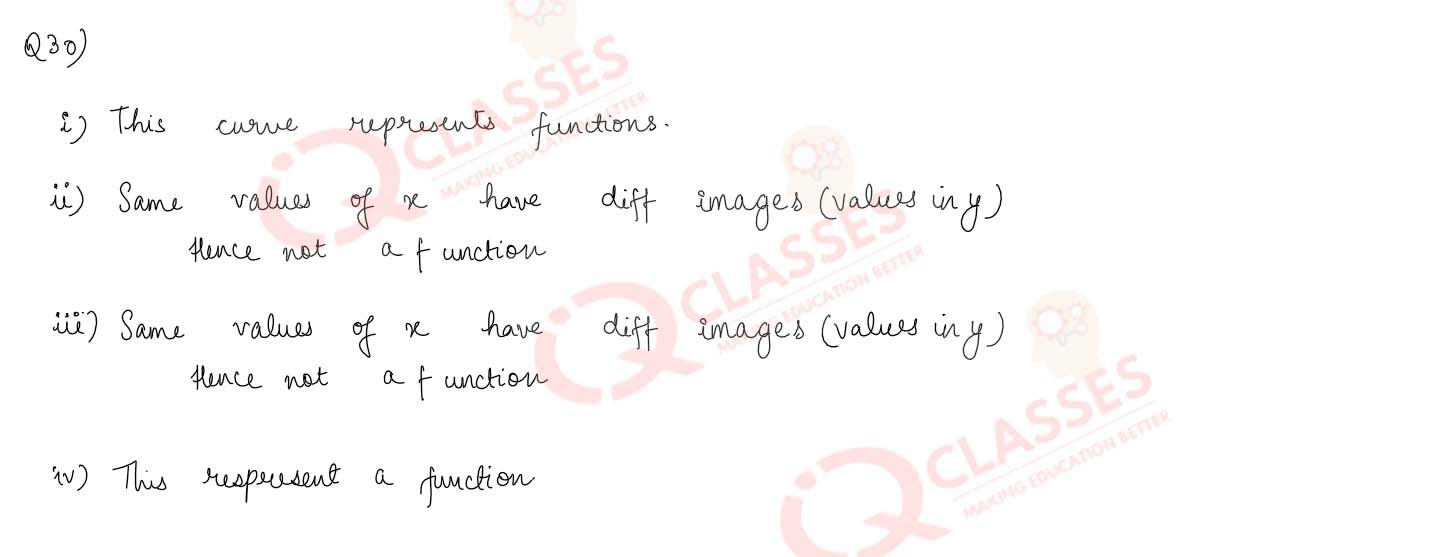 Q30)
i) This curve represents functions.
ii) Same values of x have diff images (values in y)
Hence not a function
iii) Same values of x have diff images (values in y)
Hence not a function
iv) This respresent a function
iQ CLASSES
MAKING EDUCATION BETTER
iQ CLASSES
MAKING EDUCATION BETTER
iQ CLASSES
MAKING EDUCATION BETTER